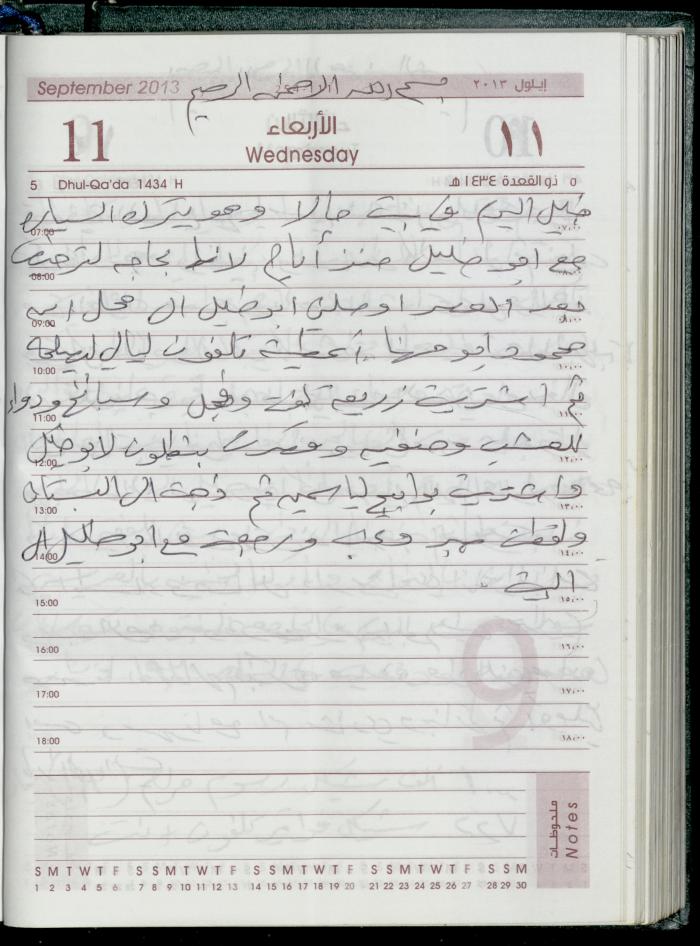 September 2013 بسم الله الرحمن الرحيم إيلول ٢٠١٣
11 الأربعاء ١١
Wednesday
5 Dhul-Qa'da 1434 H ٥ ذو القعدة ١٤٣٤ هـ
خليل اليوم في بيت خالا وهو يترك السياره
07:00 ٠٧,٠٠
مع ابو خليل منذ أيام لانها بحاجه
08:00 ٠٨,٠٠
بعد العصر اوصلني ابو خليل الى محل ابنه
09:00 ٠٩,٠٠
محمود ابو مهنا أعطيته تلفون ليال ليصلحه
10:00 ١٠,٠٠
ثم اشتريت زريعه لفت وفجل وسبانخ ودواء
11:00 ١١,٠٠
للعشب بنطلون لابو خليل
12:00 ١٢,٠٠
واشتريت ثم ذهبت الى البستان
13:00 ١٣,٠٠
ولقطت وعنب ورجعت مع ابو خليل الى
14:00 ١٤,٠٠
البيت .
15:00 ١٥,٠٠
16:00 ١٦,٠٠
17:00 ١٧,٠٠
18:00 ١٨,٠٠
9
ملحوظات
Notes
S M T W T F S S M T W T F S S M T W T F S S M T W T F S S M
1 2 3 4 5 6 7 8 9 10 11 12 13 14 15 16 17 18 19 20 21 22 23 24 25 26 27 28 29 30